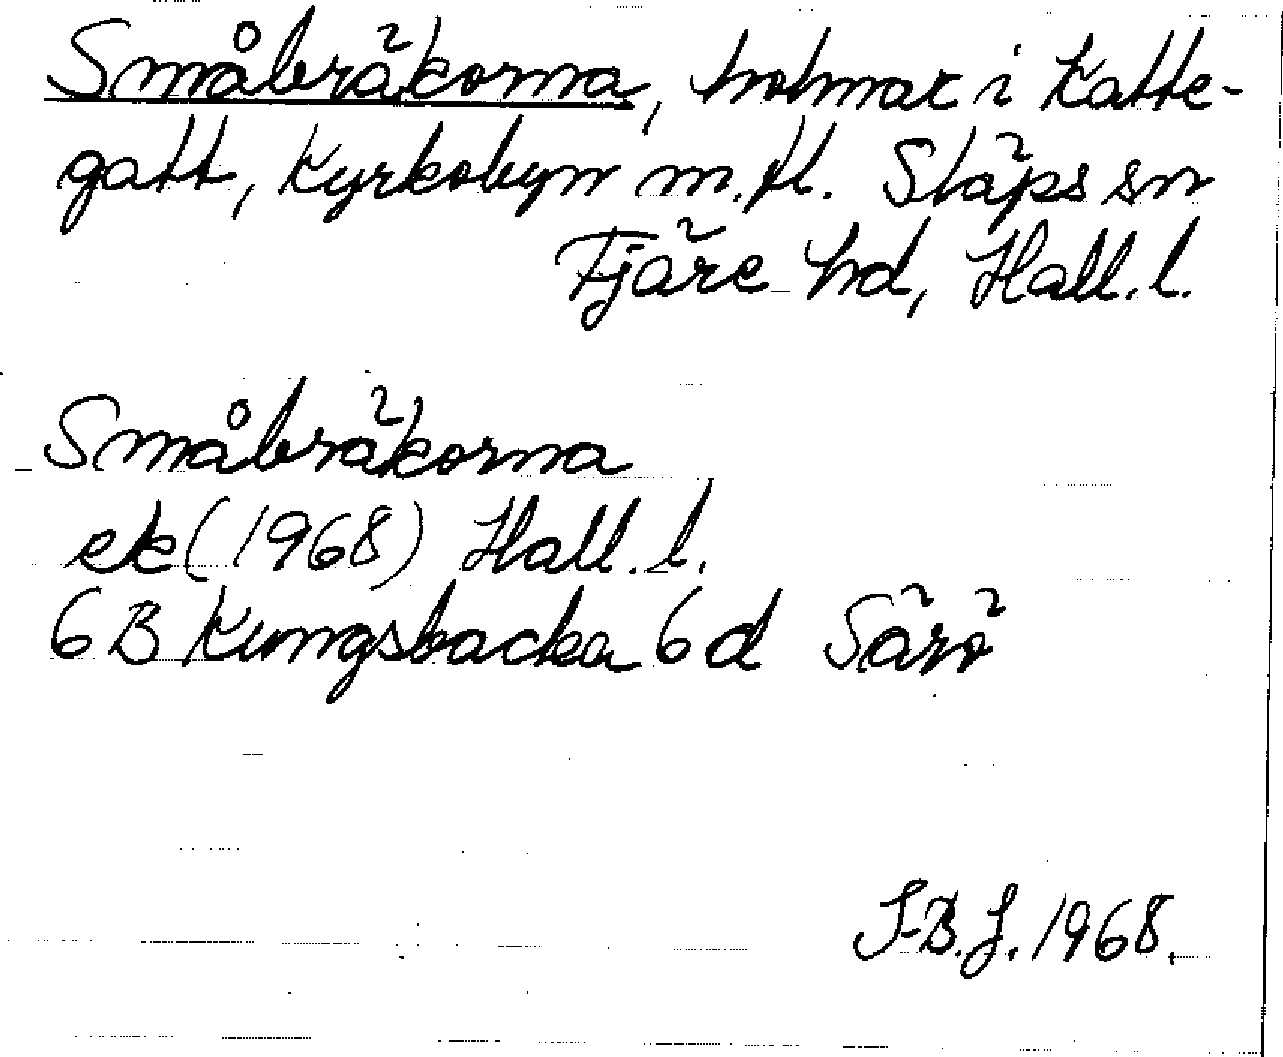 Småbräkorna, holmar i Katte-
gatt, Kyrkobyn m.fl. Släps sn
Fjäre hd, Hall.l.
Småbräkorna
ek (1968) Hall.l.
6 B Kungsbacka 6 d Särö
I-B.J. 1968.